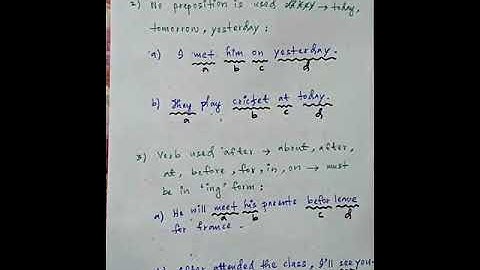 2) No preposition is used → today,
tomorrow, yesterday :
a) I met him on yesterday.
a b c d
b) They play cricket at today.
a b c d
3) Verb used after → about, after,
at, before, for, in, on → must
be in 'ing' form :
a) He will meet his parents before leave
a b c d
for france.
attended the class, I'll see you